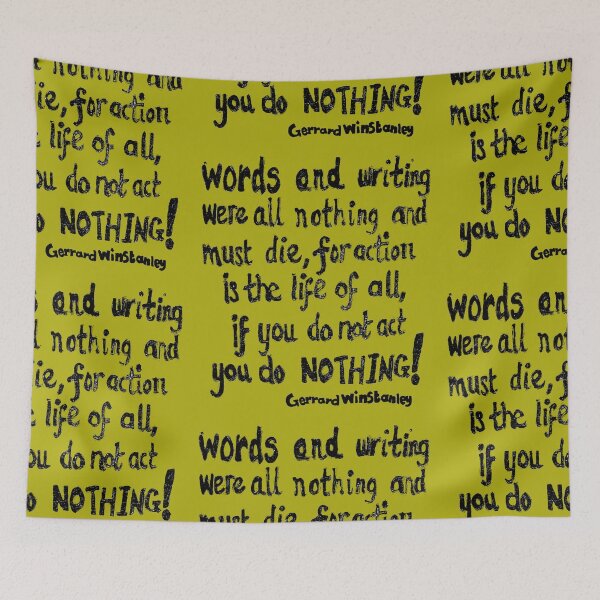 nothing and
ie, for action
life of all,
ou do not act
o NOTHING!
Gerrard WinStanley
and writing
nothing and
ie, for action
life of all,
ou do not act
o NOTHING!
you do NOTHING!
Gerrard WinStanley
words and writing
were all nothing and
must die, for action
is the life of all,
if you do not act
you do NOTHING!
Gerrard WinStanley
words and writing
were all nothing and
must die, for action
were all no
must die, f
is the life
if you d
you do NO
Gerra
words an
were all no
must die, f
is the life
if you d
you do NO